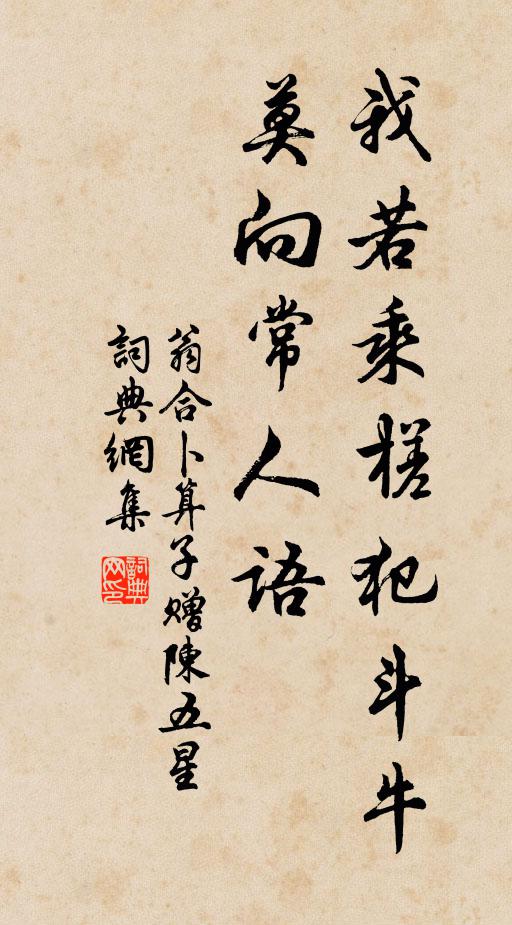 我若乘槎犯斗牛
莫向常人語
翁合卜算子贈陳五星
詞典網集
詞典网印